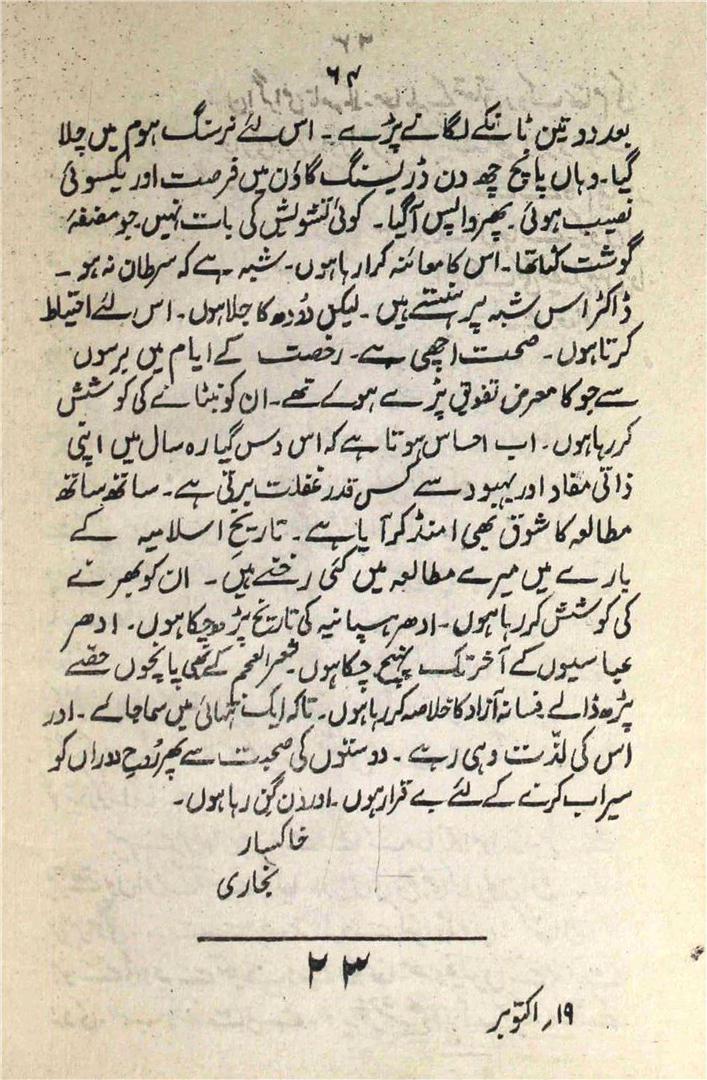 ۶۴
بعد دو تین ٹانکے لگانے پڑے ۔ اس لئے نرسنگ ہوم میں چلا
گیا۔ وہاں پانچ چھ دن ڈریسنگ گاؤن میں فرصت اور یکسوئی
نصیب ہوئی ۔ پھر واپس آگیا ۔ کوئی تشویش کی بات نہیں۔ جو مضغۂ
گوشت کٹا تھا ۔ اس کا معائنہ کرا رہا ہوں ۔ شبہ ہے کہ سرطان نہ ہو ۔
ڈاکٹر اس شبہ پر ہنستے ہیں ۔ لیکن دُودھ کا جلا ہوں ۔ اس لئے احتیاط
کرتا ہوں ۔ صحت اچھی ہے ۔ رخصت کے ایام میں برسوں
سے جو کام معرض تفوق پڑے ہوئے تھے ۔ ان کو نبٹانے کی کوشش
کر رہا ہوں ۔ اب احساس ہوتا ہے کہ اس دس گیارہ سال میں اپنی
ذاتی مفاد اور بہبود سے کس قدر غفلت برتی ہے ۔ ساتھ ساتھ
مطالعہ کا شوق بھی امنڈ کر آیا ہے ۔ تاریخ اسلامیہ کے
بارے میں میرے مطالعہ میں کئی رخنے ہیں ۔ ان کو بھرنے
کی کوشش کر رہا ہوں ۔ ادھر ہسپانیہ کی تاریخ پڑھ چکا ہوں ۔ ادھر
عباسیوں کے آخر تک پہنچ چکا ہوں ۔ شعر العجم کے بھی پانچوں حصّے
پڑھ ڈالے ۔ فسانہ آزاد کا خلاصہ کر رہا ہوں ۔ تاکہ ایک تہائی میں سما جائے ۔ اور
اس کی لذّت وہی رہے ۔ دوستوں کی صحبت سے پھر رُوحِ دوراں کو
سیراب کرنے کے لئے بے قرار ہوں ۔ اور دن گن رہا ہوں ۔
خاکسار
بخاری
۲۳
۱۹؍ اکتوبر